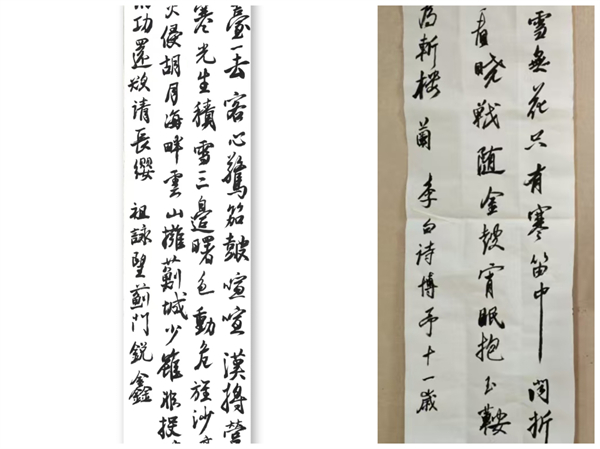 臺一去客心驚笳鼓喧喧漢將營
寒光生積雪三邊曙色動危旌沙
火侵胡月海畔雲山擁薊城少雖非投
功還欲請長纓 祖詠望薊門 銳鑫
雪無花只有寒笛中聞折
看晓戰随金鼓宵眠抱玉鞍
為斬楼蘭 李白诗博予十一歲